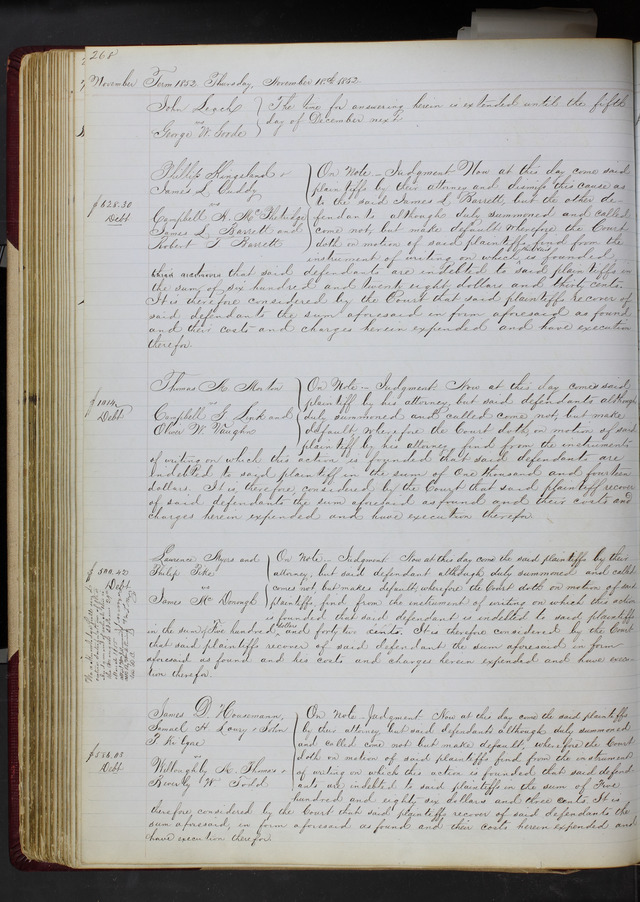 268
November Term 1852 Thursday, November 18th 1852
John Leach
vs
George W. Goode
The time for answering herein is extended until the fifth
day of December next
$628.30
Debt
Phillip Kingsland &
James L. Cuddy
vs
Campbell
James L. Barrett and
Robert T Barrett
On Note – Judgment Now at this day come said
plaintiffs by their attorney and dismiss this cause as
to the said James L Barrett, but the other de-
fendants although duly summoned and called
come not, but make default wherefore the Court
doth on motion of said plaintiffs find from the
instrument of writing on which is founded
this action
that said defendants are indebted to said plaintiffs in
the sum of six hundred and twenty eight dollars and thirty cents.
It is therefore considered by the Court that said plaintiffs recover of
said defendants the sum aforesaid in form aforesaid as found
and their costs and charges herein expended and have execution
therefor.
$1014.
Debt
Thomas H. Morton
vs
Campbell G Link and
Oliver W. Vaughn
On Note – Judgment Now at this day comes said
plaintiff by his attorney, but said defendants although
duly summoned and called come not, but make
default, wherefore the Court doth on motion of said
plaintiff by his attorney find from the instrument
of writing on which this action is founded that said defendants are
indebted to said plaintiff in the sum of One thousand and fourteen
dollars. It is, therefore, considered by the Court that said plaintiff recover
of said defendants the sum aforesaid as found and their costs and
charges herein expended and have execution therefor.
$500.42
Debt
Lawrence Myers and
Philip Pike
vs
James Mc Donogh
On Note – Judgment Now at this day come the said plaintiffs by their
attorney, but said defendant although duly summoned and called
comes not, but makes default; wherefore the Court doth on motion of said
plaintiffs, find from the instrument of writing on which this action
is founded that said defendant is indebted to said plaintiffs
in the sum of Five hundred dollars and forty two cents. It is therefore considered by the Court
that said plaintiffs recover of said defendant the sum aforesaid in form
aforesaid as found and his costs and charges herein expended and have execu-
tion therefor.
$586.03
Debt
James D. Houseman,
Samuel H. Loury & John
vs
Willoughby
Beverly W. Todd
On Note – Judgment. Now at this day come the said plaintiffs
by their attorney, but said defendants although duly summoned
and called come not but make default, wherefore the Court
doth on motion of said plaintiffs, find from the instrument
of writing on which this action is founded that said defend-
ants are indebted to said plaintiffs in the sum of Five
hundred and eighty six dollars and three cents. It is
therefore, considered by the Court that said plaintiffs recover of said defendants the
sum aforesaid, in form aforesaid as found and their costs herein expended and
have execution therefor.